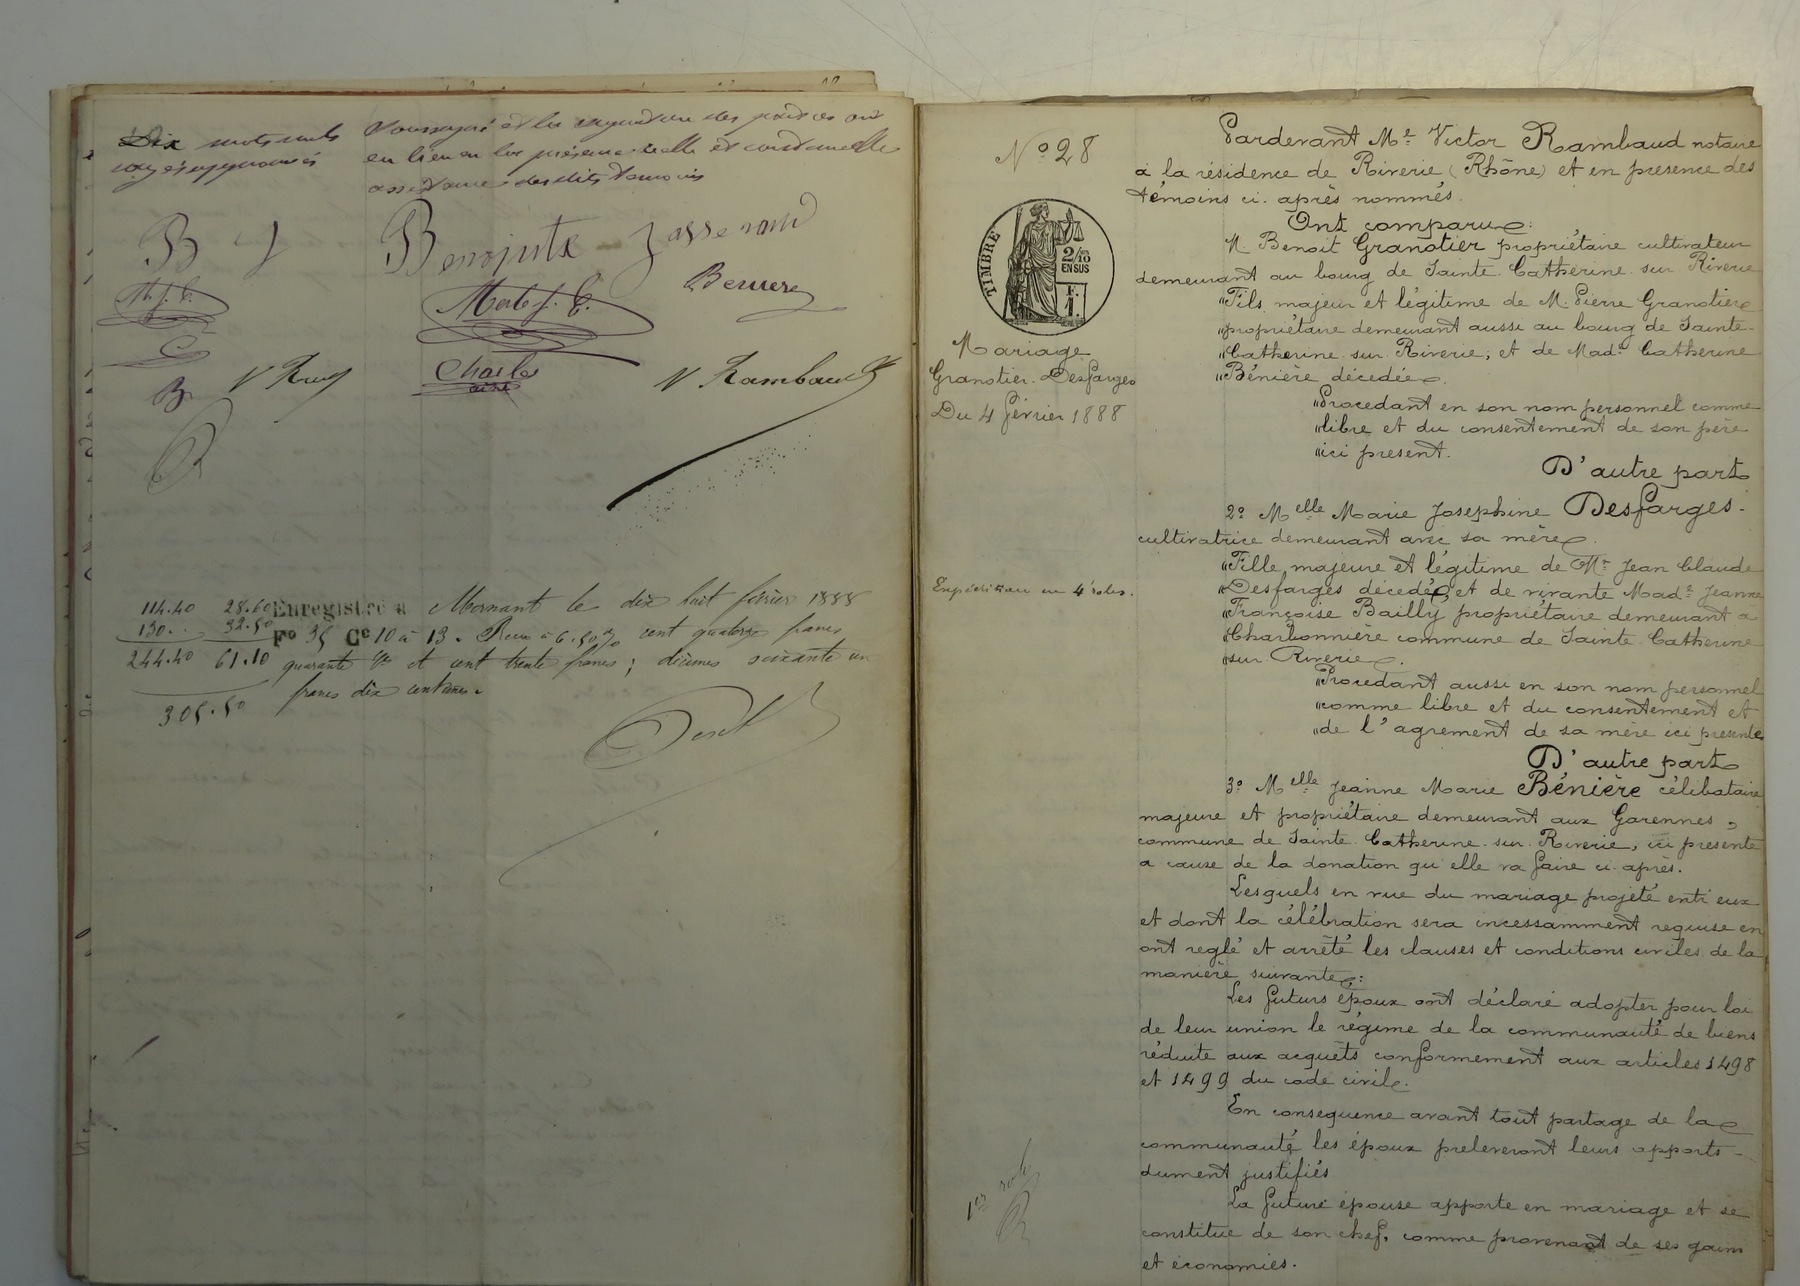 Dix mots nuls
rayés approuvés
soussigné et la signature des parties ont
eu lieu en la présence réelle et
assistance des dits témoins
B J
Benojute Jasserand
M. J. C.
Berne
B
Charles
V Rambaud
114.40 28.60 Enregistré à Mornant le dix huit février 1888
130.. 32.50 Fo 35 Ce 10 à 13. Reçu à 6.50 % cent quatorze francs
244.40 61.10 quarante ces et cent trente francs ; décimes soixante un
francs dix centimes.
305.50
No 28
TIMBRE
2/10
EN SUS
F.
1.
Mariage
Granotier. Desfarges
Du 4 février 1888
Expédition en 4 roles.
1er role
Pardevant Me Victor Rambaud notaire
à la résidence de Riverie (Rhône) et en présence des
témoins ci. après nommés.
Ont comparu :
M Benoit Granotier propriétaire cultivateur
demeurant au bourg de Sainte Catherine sur Riverie
"Fils majeur et légitime de M. Pierre Granotier
"propriétaire demeurant aussi au bourg de Sainte-
"Catherine sur Riverie, et de Made Catherine
"Bénière décedée.
"Procedant en son nom personnel comme
"libre et du consentement de son père
"ici present.
D'autre part
2o Melle Marie Josephine Desfarges.
cultivatrice demeurant avec sa mère.
"Fille majeure et légitime de Mr Jean Claude
"Desfarges décedé, et de vivante Made Jeanne
"Françoise Bailly propriétaire demeurant à
"Charbonnière commune de Sainte Catherine
"sur Riverie.
"Procedant aussi en son nom personnel
"comme libre et du consentement et
"de l'agrement de sa mère ici presente
D'autre part
3o Melle Jeanne Marie Bénière célibataire
majeure et propriétaire demeurant aux Garennes,
commune de Sainte Catherine. sur Riverie, ici presente
a cause de la donation qu'elle va faire ci après.
Lesquels en vue du mariage projeté entr'eux
et dont la célébration sera incessamment requise en
ont reglé et arrêté les clauses et conditions civiles de la
manière suivante :
Les futurs époux ont déclaré adopter pour loi
de leur union le régime de la communauté de biens
réduite aux acquêts conformement aux articles 1498
et 1499 du code civil.
En consequence avant tout partage de la
communauté les époux preleveront leurs apports
dument justifiés
La future épouse apporte en mariage et se
constitue de son chef, comme provenant de ses gains
et économies.